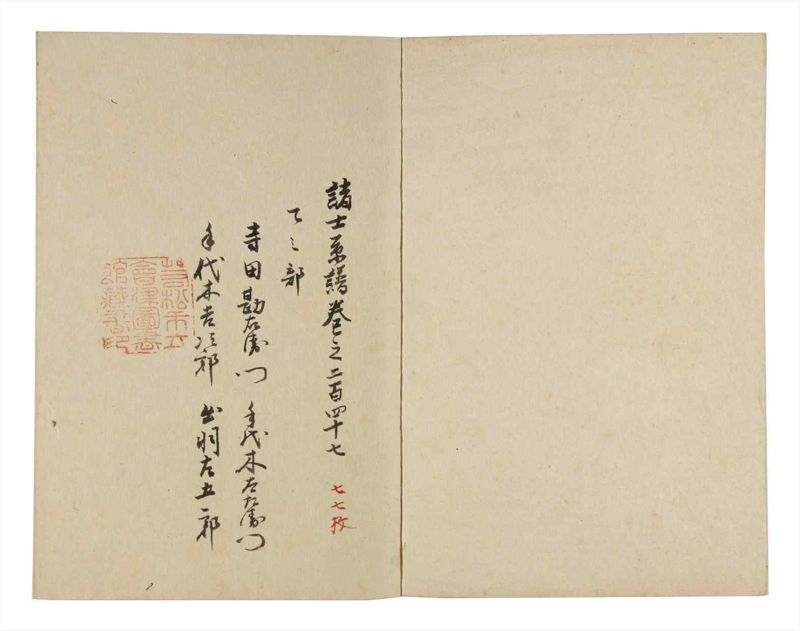 諸士系譜巻之二百四十七 七七枚
てノ部
寺田勘右衛門 手代木左右衛門
手代木吉次郎 出羽左五郎
若松市立
會津圖書
館藏書印